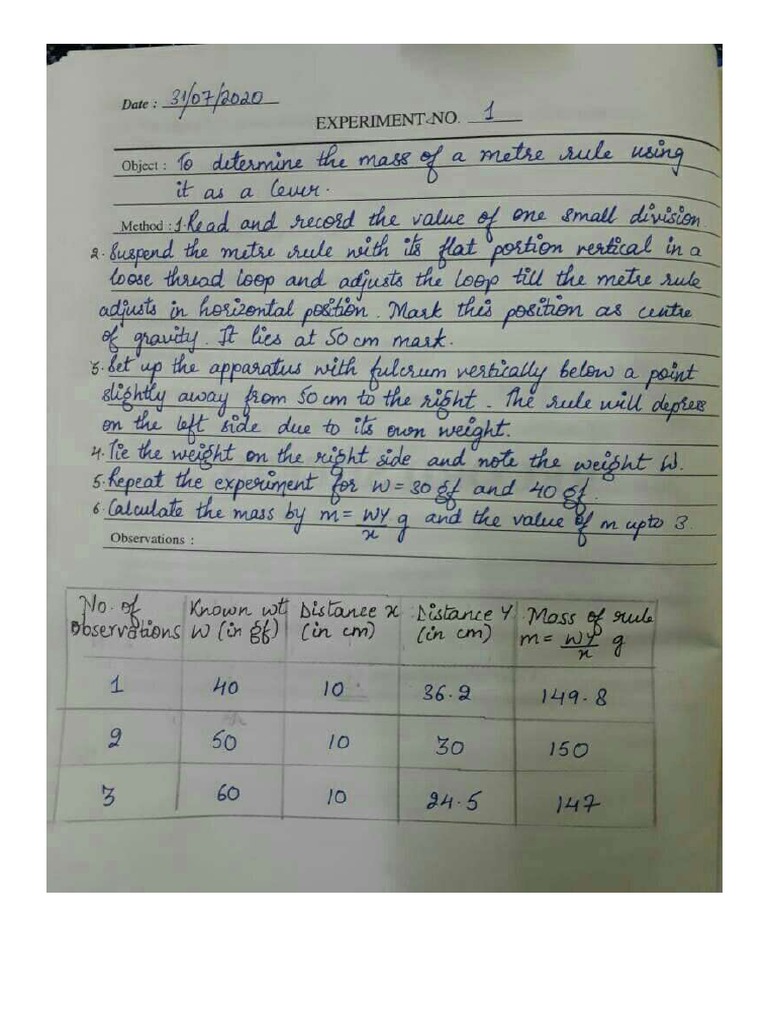 Date : 31/07/2020
EXPERIMENT NO. 1
Object : To determine the mass of a metre rule using
it as a lever.
Method : 1. Read and record the value of one small division
2. Suspend the metre rule with its flat portion vertical in a
loose thread loop and adjusts the loop till the metre rule
adjusts in horizontal position. Mark this position as centre
of gravity. It lies at 50 cm mark.
3. Set up the apparatus with fulcrum vertically below a point
slightly away from 50 cm to the right. The rule will depress
on the left side due to its own weight.
4. Tie the weight on the right side and note the weight W.
5. Repeat the experiment for W = 30 gf and 40 gf.
6. Calculate the mass by m = WY/x g and the value of m upto 3
Observations :
No. of Observations | Known wt W (in gf) | Distance x (in cm) | Distance Y (in cm) | Mass of rule m = WY/x g
1 40 10 36.2 149.8
2 50 10 30 150
3 60 10 24.5 147